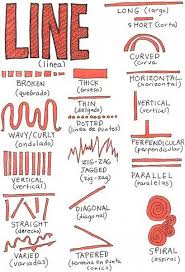 LINE
(linea)
LONG (largo)
SHORT (corta)
CURVED
Curve
BROKEN
(quebrado)
THICK
HORIZONTAL
(horizontal)
THIN
(delgado)
DOTTED
(linea de puntos)
VERTICAL
(vertical)
WAVY/CURLY
(ondulado)
ZIG-ZAG
JAGGED
(zig-zag)
PERPENDICULAR
(perpendicular)
VERTICAL
(vertical)
PARALLEL
(paralelas)
STRAIGHT
(derecho)
DIAGONAL
(diagonal)
VARIED
(variadas)
TAPERED
(termina en punta
conico)
SPIRAL
(espiral)